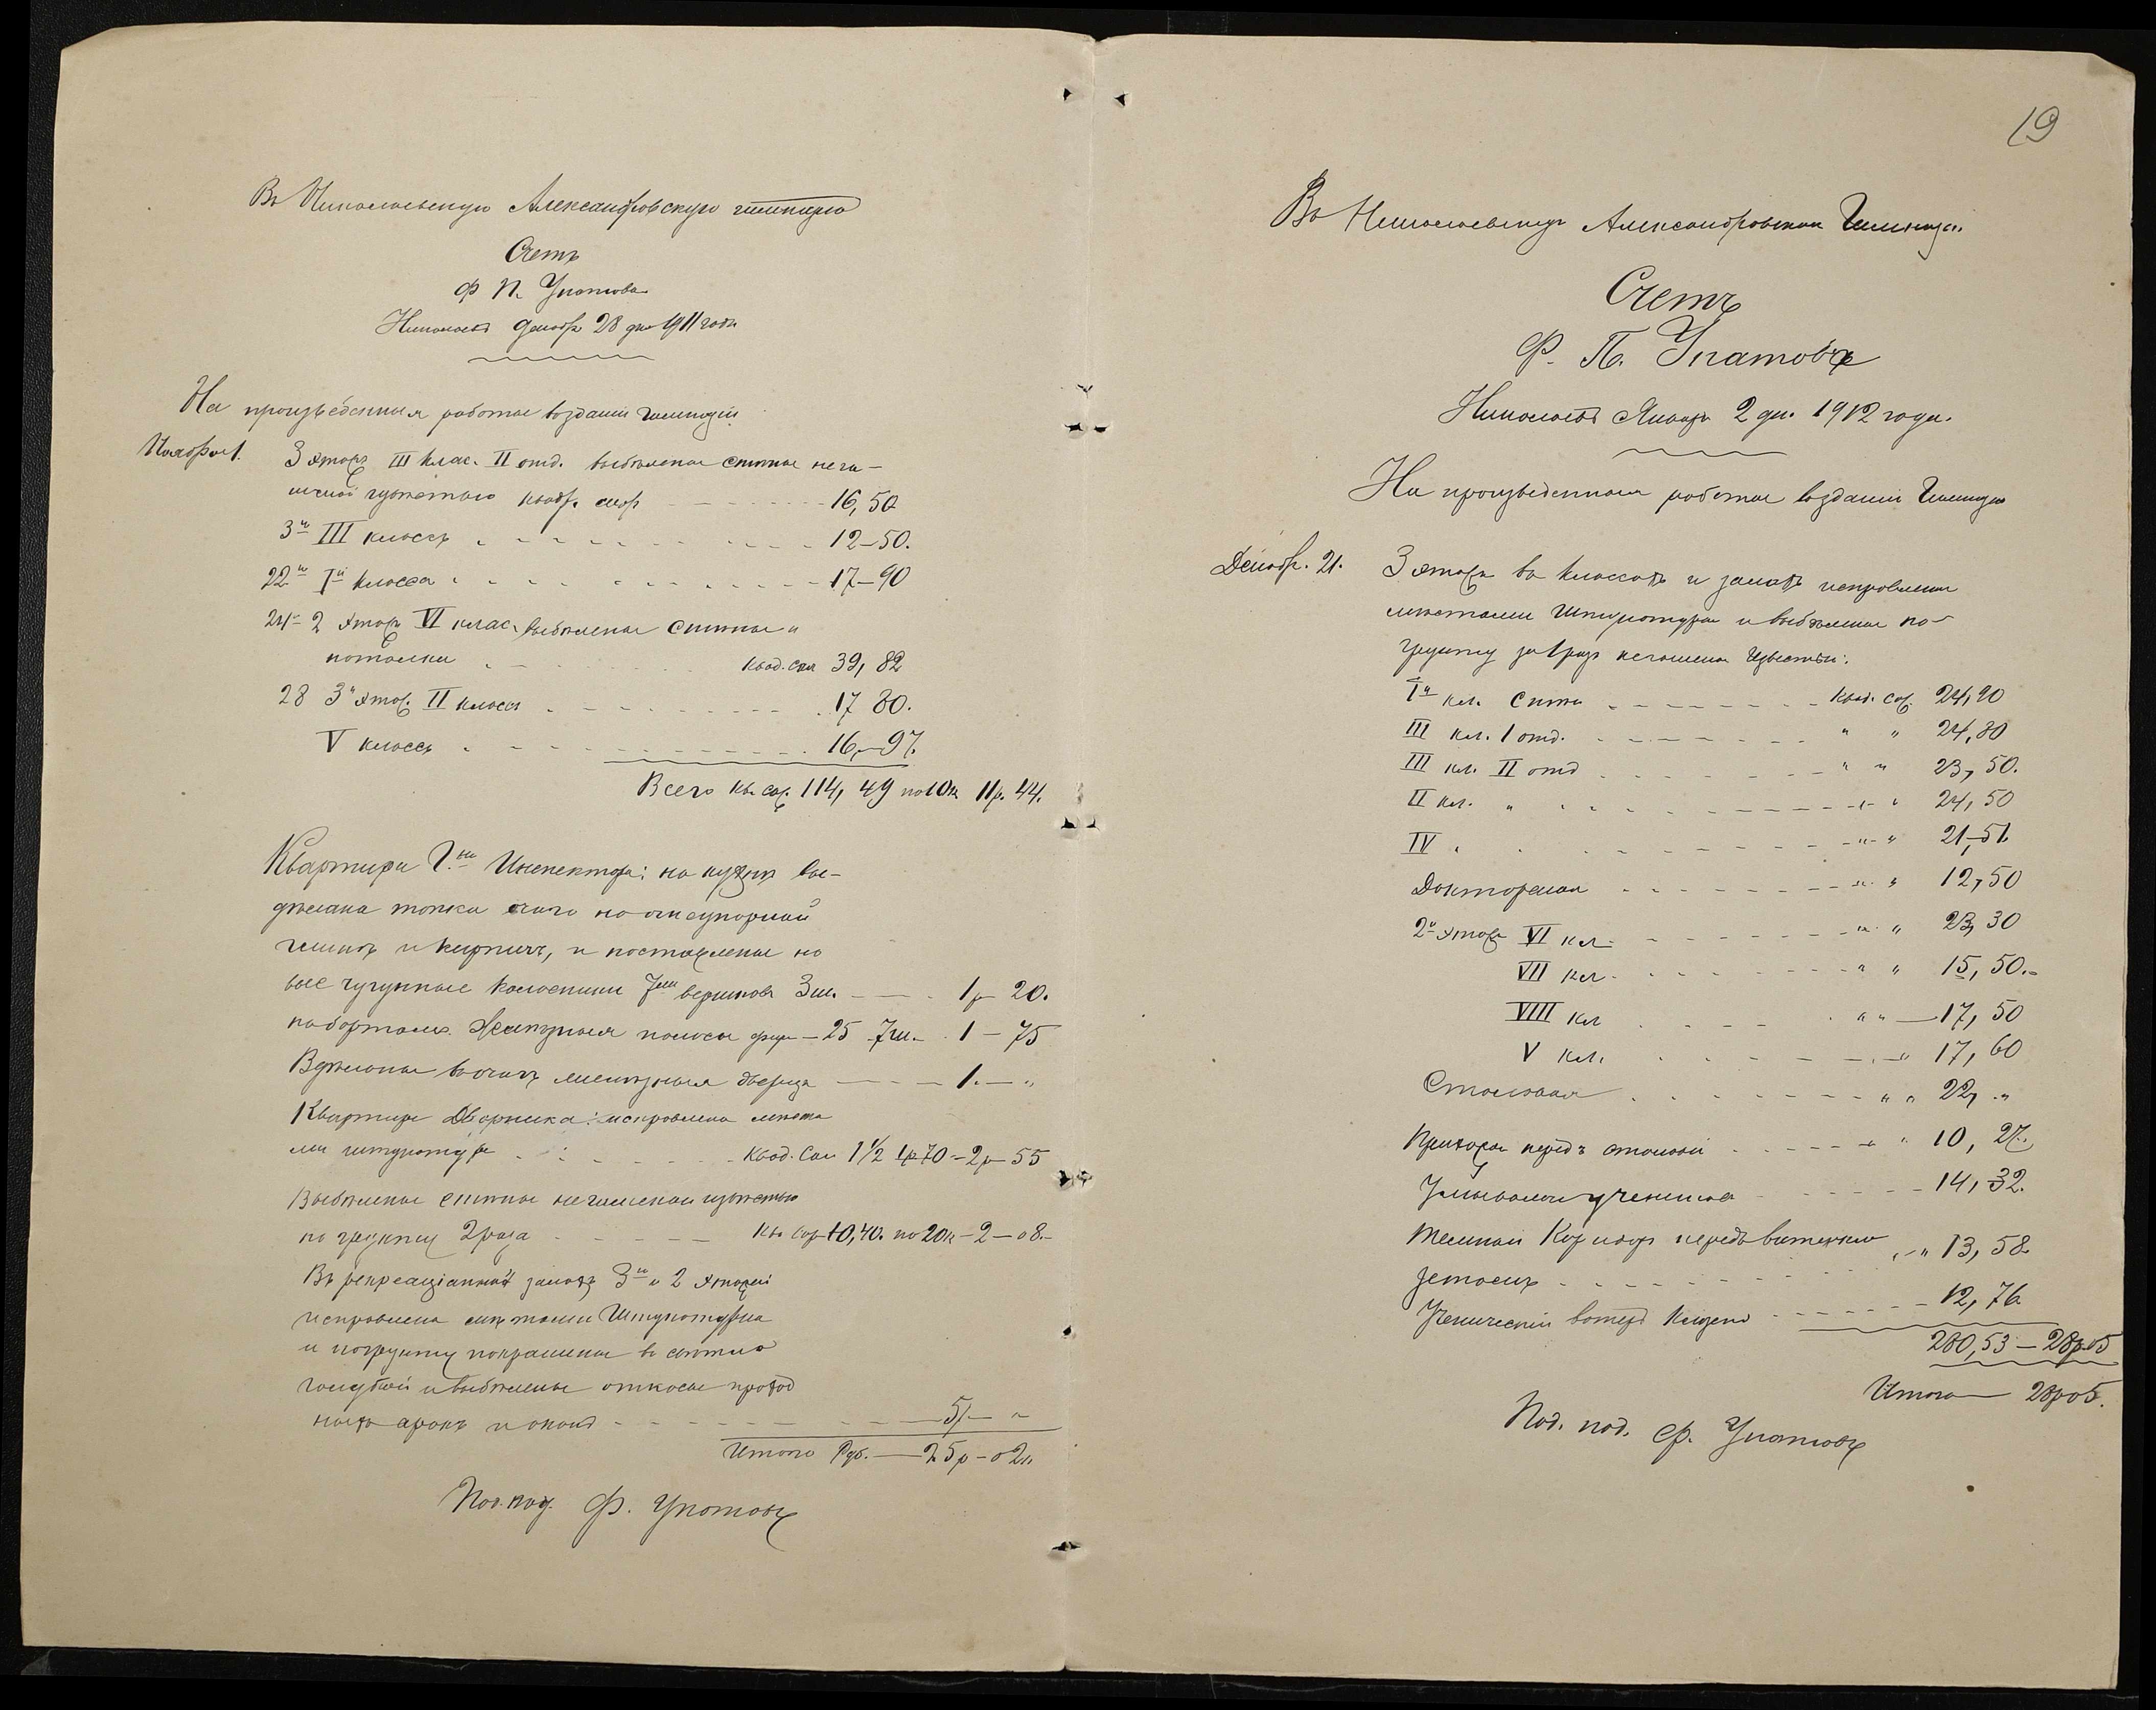 Въ Николаевскую Александровскую гимназію
Счетъ
Ф П. Ипатова
Николаевъ Декабр 28 дня 1911 года
На произведенныя работы въ зданіи гимназіи
Ноября 1. 3 этажъ III клас. II отд. выбѣлены стены нега-
шеной густотою квадр. саж 16,50
3го III классъ 12–50.
22го Iй класса 17–90
24го 2 этажъ VI клас. выбѣлены стены и
потолки квад. саж 39,82
28 3й этаж. II класса 17 80.
V классъ 16,–97.
Всего кв. саж. 114,49 по 10к 11р. 44.
Квартира Г.на Инспектора: на кухнѣ вы-
дѣлана топка очага на огнеупорной
глинѣ и кирпичъ, и поставлены но
вые чугунные колосники 7ми вершковъ 3ш. 1р 20.
по бортамъ Желѣзныя полосы фун – 25 7ш. 1–75
Вдѣланы въ очагъ желѣзныя дверца 1.–"
Квартира Дворника: исправлена мѣста
ми штукатурк квад. саж 1 1/2 1р70–2р 55
Выбѣлены стены негашеной извѣстью
по грунту 2 раза кв. саж 10,40. по 20к–2–08.–
Въ рекреаціонной залахъ 3го и 2 этажей
исправлена мѣстами Штукатурка
и по грунту покрашены въ свѣтло
голубой и выбѣлены откосы проход
ныхъ арокъ и оконъ 5р–"
Итого Руб. 25р–02к
Под. под. Ф. Ипатовъ
19
Въ Николаевскую Александровскую Гимназію
Счетъ
Ф. П. Ипатова
Николаевъ Январь 2 дн. 1912 года.
На произведенныя работы въ зданіи Гимназіи
Декабр. 21. 3 этажъ въ классахъ и залахъ исправлены
мѣстами Штукатурка и выбѣлены по
грунту за 1 разъ негашеной извѣстью:
Iй кл. стены Квад. саж. 24,90
III кл. I отд. " " 24,80
III кл. II отд " " 23,50.
II кл. " " 24,50
IV " " 21,51.
Докторская " " 12,50
2й этажъ VI кл. " " 23,30
VII кл. " " 15,50.–
VIII кл " " 17,50
V кл. " 17,60
Столовая " " 22, "
Прихожая передъ столовой " 10,27.
Умывальня ученика 14,32.
Темный Коридоръ передъ ватеръкло
зетомъ " 13,58
Ученическій ватеръ Клозетъ 12,76
280,53–28р.05
Итого 28р05.
Под. под. Ф. Ипатовъ